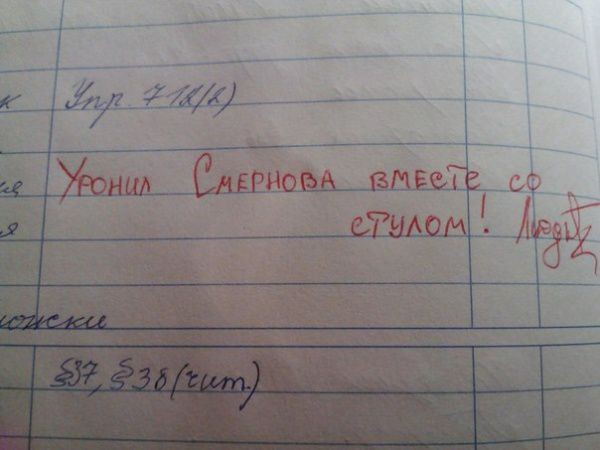 к Упр. 718(2)
Уронил Смернова вместе со
я
стулом!
§37, §38 (чит.)